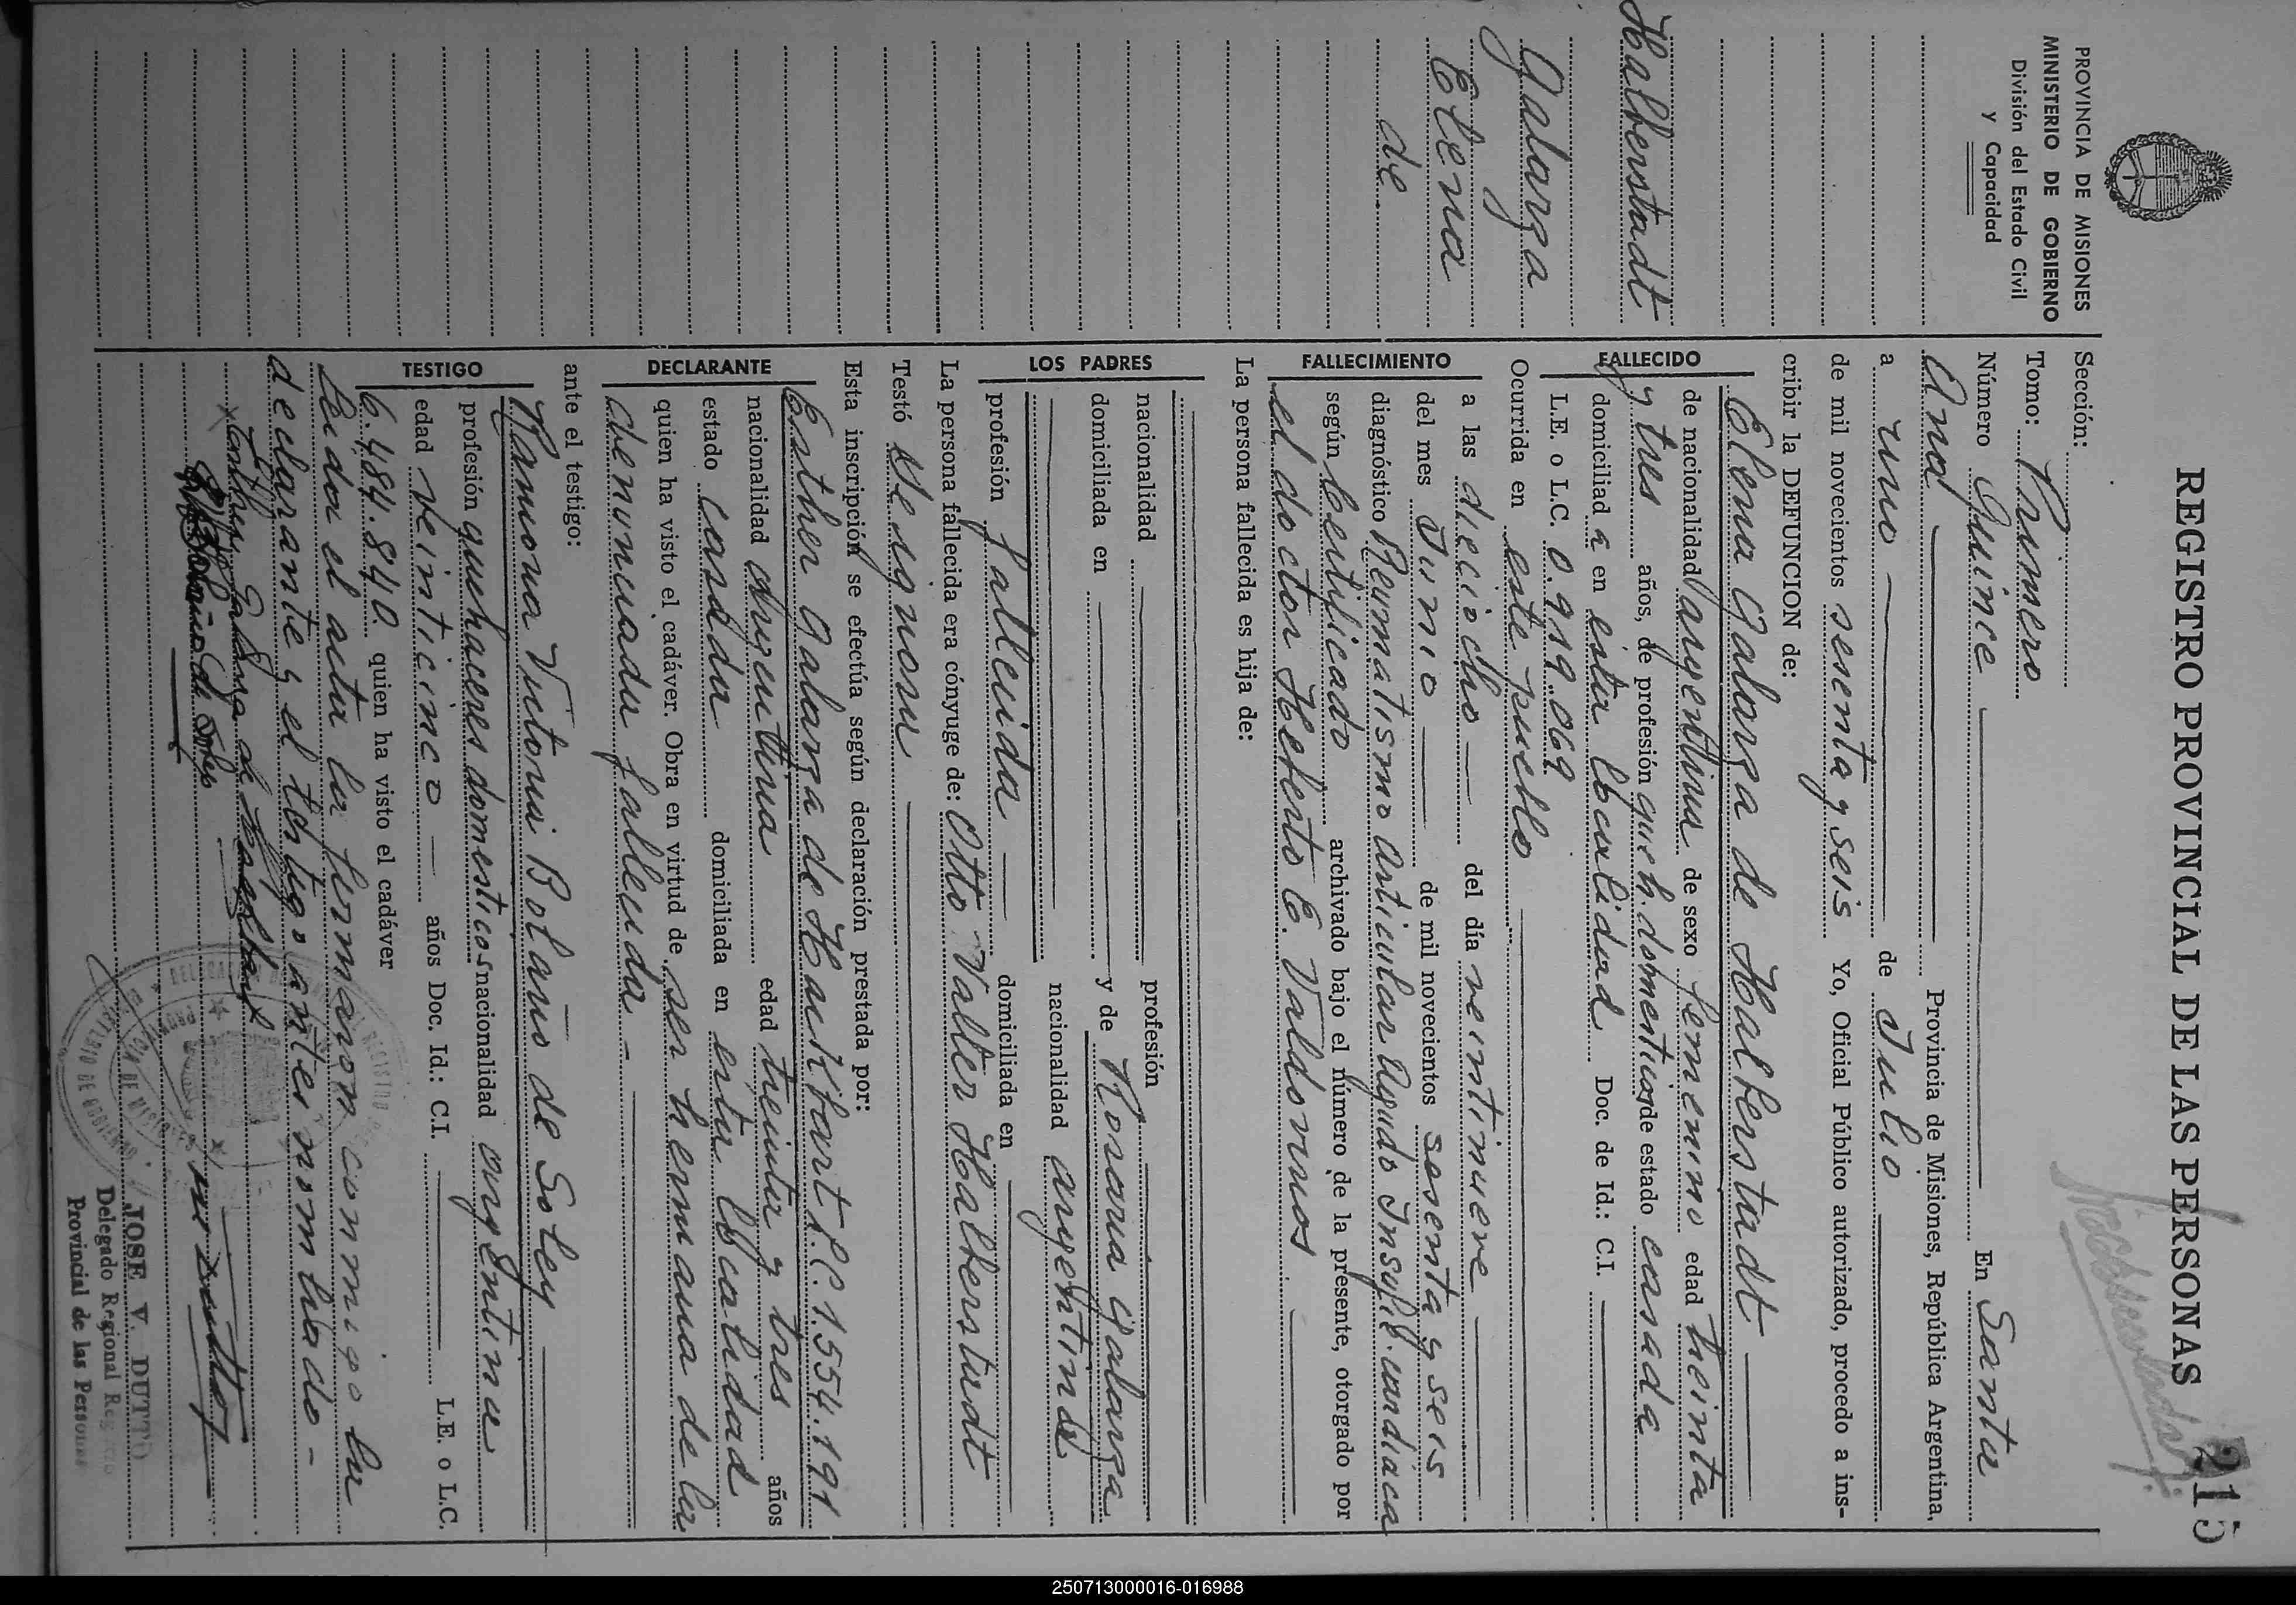 REGISTRO PROVINCIAL DE LAS PERSONAS
215
PROVINCIA DE MISIONES
MINISTERIO DE GOBIERNO
División del Estado Civil
y Capacidad
Halberstadt
Galarza
Elena
de.
Sección:
Tomo: Primero
Número Quince En Santa
Ana Provincia de Misiones, República Argentina,
a uno de Julio
de mil novecientos sesenta y seis Yo, Oficial Público autorizado, procedo a ins-
cribir la DEFUNCION de:
FALLECIDO
Elena Galarza de Halberstadt
de nacionalidad argentina de sexo femenino edad treinta
y tres años, de profesión queh. domesticos de estado casada
domiciliad a en esta localidad Doc. de Id.: C.I.
L.E. o L.C. 0.919.069
FALLECIMIENTO
Ocurrida en este pueblo
a las dieciocho del día veintinueve
del mes Junio de mil novecientos sesenta y seis
diagnóstico Reumatismo articular agudo Insufic. cardíaca
según certificado archivado bajo el número de la presente, otorgado por
el doctor Heberto E. Valdovinos.
La persona fallecida es hija de:
LOS PADRES
nacionalidad profesión
domiciliada en y de Rosaria Galarza
nacionalidad argentina
profesión fallecida domiciliada en
La persona fallecida era cónyuge de: Otto Valter Halberstadt
Testó Se ignora
Esta inscripción se efectúa según declaración prestada por:
DECLARANTE
Esther Galarza de L.C. 1.554.191
nacionalidad argentina edad treinta y tres años
estado casada domiciliada en esta localidad
quien ha visto el cadáver. Obra en virtud de ser hermana de la
fallecida -
ante el testigo:
TESTIGO
Ramona Victoria Bolaño de Soley
profesión quehaceres domesticos nacionalidad argentina
edad veinticinco años Doc. Id.: C.I. L.E. o L.C.
6.484.840. quien ha visto el cadáver
Leida el acta la firmaron conmigo la
declarante y el testigo antes nombrado -
Esther Galarza de
de Soley
JOSE V. DUTTO
Delegado Regional Registro
Provincial de las Personas
250713000016-016988